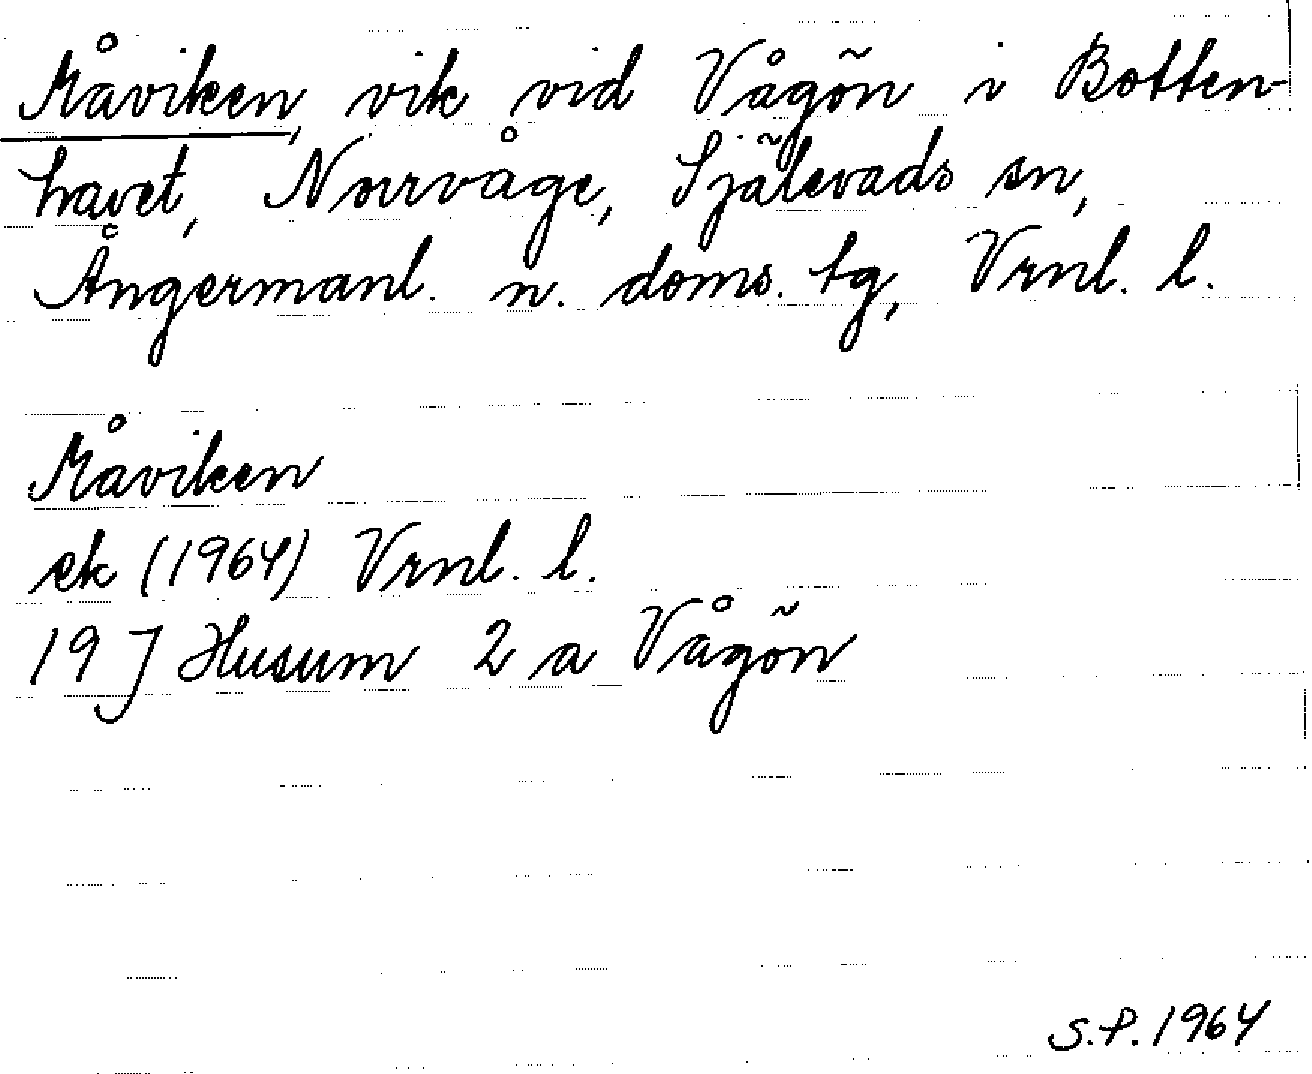 Måviken, vik vid Vågön i Botten-
havet, Norrvåge, Själevads sn,
Ångermanl. n. doms. tg, Vrnl. l.
Måviken
ek (1964) Vrnl. l.
19 J Husum 2 a Vågön
S.P. 1964